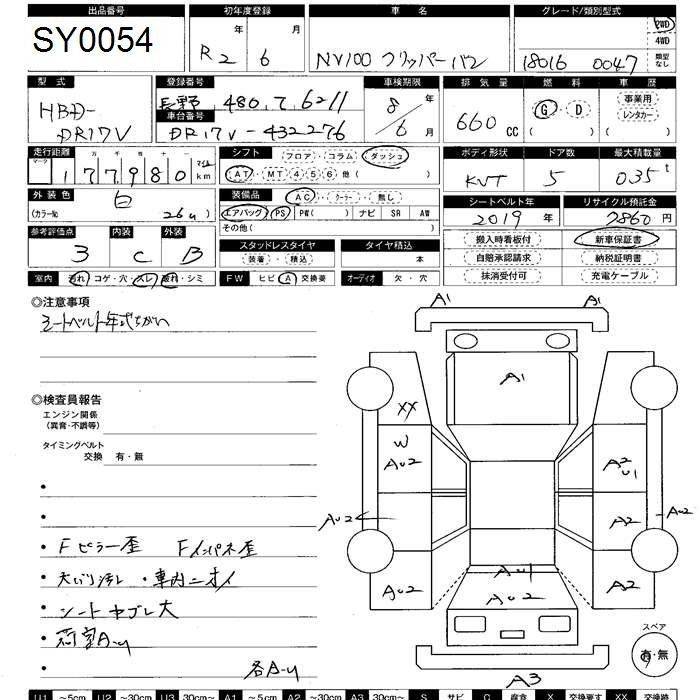 出品番号 初年度登録 車名 グレード/類別型式
SY0054 R2年 6月 NV100 クリッパーバン 18016 0047 2WD 4WD 類型なし
型式 登録番号 車検期限 排気量 燃料 車歴
HBD-DR17V 長野 480 6211 8年 6月 660cc G・D ( ) 事業用 レンタカー ( )
車台番号
DR17V-432276
走行距離 シフト フロア・コラム・ダッシュ ボディ形状 ドア数 最大積載量
マーク 十 万 千 百 十 一 マイル
177980 km AT MT 4 5 6 他 ( ) 5 035t
外装色 装備品 AC・クーラー・無し シートベルト年 リサイクル預託金
白 (カラーNo 26u) エアバッグ PS PW( ) ナビ SR AW 2019年 7860円
その他( )
参考評価点 内装 外装 スタッドレスタイヤ タイヤ積込 搬入時看板付 新車保証書
3 C B 装着・積込 本 自賠承認請求 納税証明書
室内 汚れ・コゲ・穴・スレ・破れ・シミ FW ヒビ A 交換要 オーディオ 欠・穴 抹消受付可 充電ケーブル
◎注意事項
シートベルト年式ちがい
◎検査員報告
エンジン関係
(異音・不調等)
タイミングベルト
交換 有・無
・Fピラー歪 Fインパネ歪
・天バリ汚れ ・車内ニオイ
・シートヤブレ大
・荷室A-u
・各A-u
A1 A1
A1
XX
W
AU2 A2 U1
AU2 A2 AU2
AU1
AU2 AU2 A2
A3
スペア
有・無
U1 ～5cm U2 ～30cm U3 30cm～ A1 ～5cm A2 ～30cm A3 30cm～ S サビ C 腐食 X 交換要 XX 交換跡